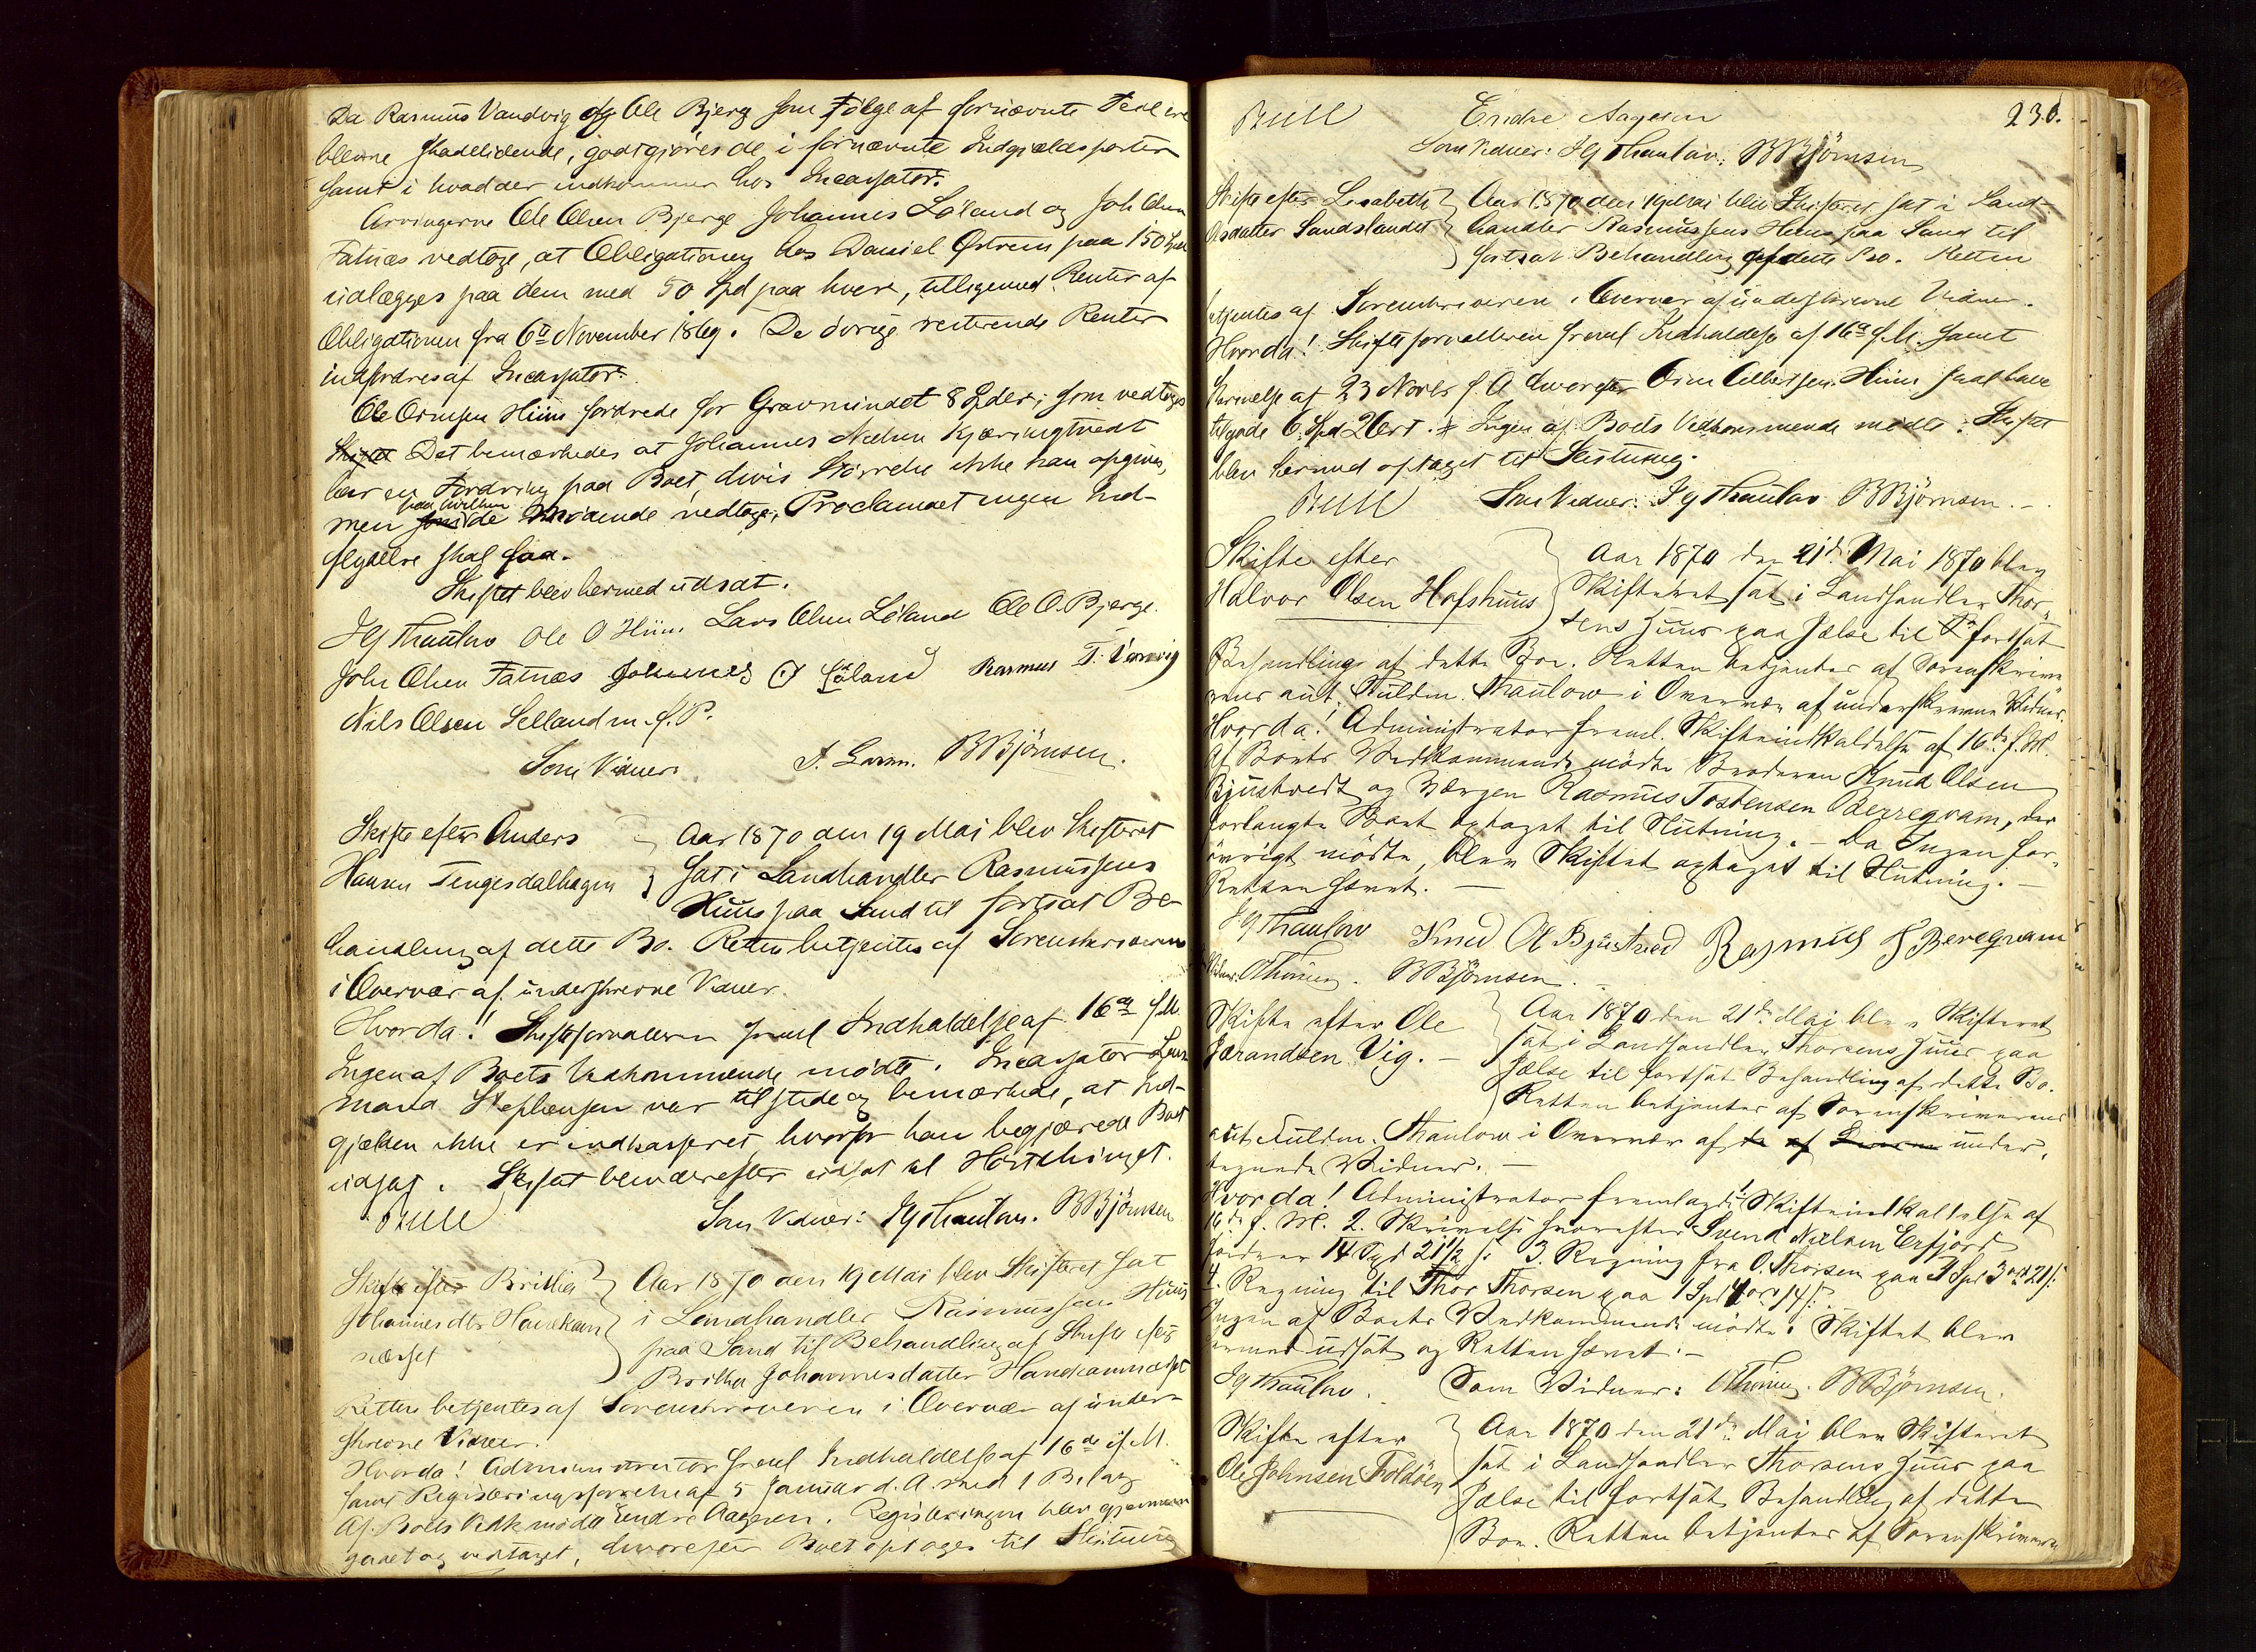 Da Rasmus Vandvig og Ole Bjerge som Følge af fornævnte Feil ere
blevne skadelidende, godtgjøres de i fornævnte Indgjældsposter
samt i hvad der indkommer hos Incassator.
Arvingerne Ole Olsen Bjerge Johannes Løland og Joh Olsen
Fatnæs vedtoge, at Obligationen hos Daniel Østrem paa 150 Spd
udlægges paa dem med 50 Spd paa hver, tilligemed Renter af
Obligationen fra 6te November 1869. De øvrige resterende Renter
indfordres af Incassator.
Ole Ormsen Hiim fordrede for Gravmindet 8 Spdlr, som vedtoges
Skiftet Det bemærkedes at Johannes Nielsen Kjæringtvedt
har en Fordring paa Boet, hvis Størrelse ikke kan opgives,
paa hvilken
men som de Mødende vedtoge, Proclamaet ingen Ind-
flydelse skal faa.
Skiftet blev hermed udsat.
JG Thaulow Ole O Hiim. Lars Olsen Løland Ole O. Bjerge.
John Olsen Fatnæs Johannes O Løland Rasmus T. Vandvig
Nils Olsen Selland m. f. P.
Som Vidner: BBjørnsen.
Skifte efter Anders
Hansen Tengesdalhagen
Aar 1870 den 19 Mai blev Skifteret
sat i Landhandler Rasmussens
Huus paa Sand til fortsat Be-
handling af dette Bo. Retten betjentes af Sorenskriveren
i Overvær af underskrevne Vidner.
Hvorda! Skifteforvalteren freml Indkaldelse af 16de f.M.
Ingen af Boets Vedkommende mødte. Incassator Lens-
mand Stephensen var tilstede og bemærkede, at Ind-
gjælden ikke er indkasseret, hvorfor han begjærede Boet
udsat. Skiftet blev derefter udsat til Høstthinget.
Bull Som Vidner: JG Thaulow. BBjørnsen
Skifte efter Britha
Johannesdtr Handkam
næsset
Aar 1870 den 19 Mai blev Skifteret sat
i Landhandler Rasmussens Huus
paa Sand til Behandling af Skifte efter
Britha Johannesdatter Handkamnæsset
Retten betjentes af Sorenskriveren i Overvær af under-
skrevne Vidner.
Hvorda! Administrator freml Indkaldelse af 16de f.M.
samt Registreringsforretn af 5 Januar d. A. med 1 Bilag
Af Boets Vedk mødte Endre Aagesen. Registreringen blev gjennem
gaaet og vedtaget, hvorefter Boet optoges til Slutning
230.
Bull Endre Aagesen
Som Vidner: JG Thaulow. BBjørnsen
Skifte efter Lisabeth
Asdatter Sandslandet
Aar 1870 den 19 Mai blev Skifteret sat i Land-
handler Rasmussens Huus paa Sand til
fortsat Behandling af dette Bo. Retten
betjentes af Sorenskriveren i Overvær af underskrevne Vidner.
Hvorda! Skifteforvalteren freml Indkaldelse af 16de f.M. samt
Skrivelse af 23 Novbr f. A hvorefter Orm Albertsen Hiim skal have
tilgode 6 Spd 2 Ort. Ingen af Boets Vedkommende mødte. Skiftet
blev hermed optaget til Slutning.
Bull Som Vidner: JG Thaulow BBjørnsen.
Skifte efter
Halvor Olsen Hofshuus
Aar 1870 den 21de Mai 1870 blev
Skifteret sat i Landhandler Thor-
sens Huus paa Jelse til fortsat
Behandling af dette Boe. Retten betjentes af Sorenskrive-
rens aut. Fuldm. Thaulow i Overvær af underskrevne Vidner.
Hvorda! Administrator freml. Skifteindkaldelse af 16de f. M.
Af Boets Vedkommende mødte Broderen Knud Olsen
Bjustvedt og Værgen Rasmus Tostensen Berregvam, der
forlangte Boet optaget til Slutning. – Da Ingen for-
øvrigt mødte, blev Skiftet optaget til Slutning. –
Retten hævet. –
JG Thaulow Knud O Bjustved Rasmus T Beregvam
Vidner. BBjørnsen.
Skifte efter Ole
Jærandsen Vig. –
Aar 1870 den 21de Mai blev Skifteret
sat i Landhandler Thorsens Huus paa
Jelse til fortsat Behandling af dette Bo.
Retten betjentes af Sorenskriverens
aut. Fuldm. Thaulow i Overvær af under-
tegnede Vidner. –
Hvorda! Administrator fremlagde 1. Skifteindkaldelse af
16de f. M. 2. Skrivelse hvorefter Svend Nielsen Erfjord
fordrer 14 Spd 21½ s: 3. Regning fra O. Thorsen paa 1 Spd 3 ort 21 s:
4. Regning til Thor Thorsen paa 1 Spd 4 ort 14 s:
Ingen af Boets Vedkommende mødte. Skiftet blev
hermed udsat og Retten hævet. –
JG Thaulow. Som Vidner: BBjørnsen.
Skifte efter
Ole Johnsen Foldøen
Aar 1870 den 21de Mai blev Skifteret
sat i Landhandler Thorsens Huus paa
Jelse til fortsat Behandling af dette
Boe. Retten betjentes af Sorenskriverens